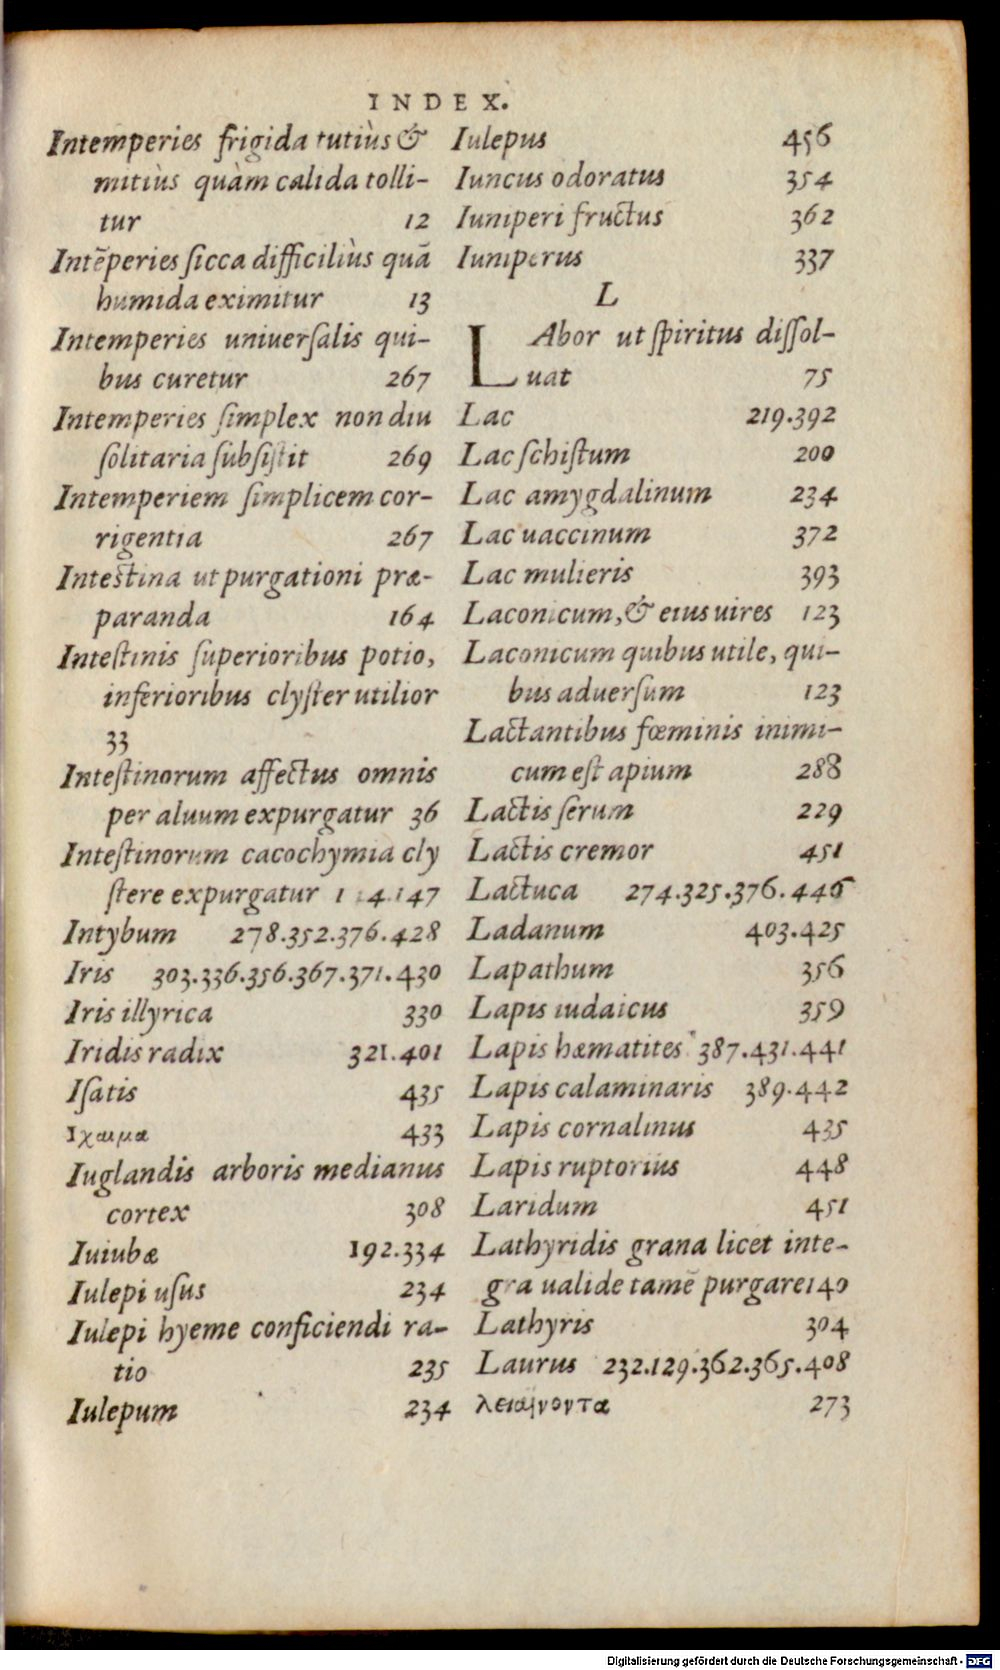 INDEX.
Intemperies frigida tutiùs &
mitiùs quàm calida tolli-
tur 12
Intēperies sicca difficiliùs quā
humida eximitur 13
Intemperies uniuersalis qui-
bus curetur 267
Intemperies simplex non diu
solitaria subsistit 269
Intemperiem simplicem cor-
rigentia 267
Intestina ut purgationi præ-
paranda 164
Intestinis superioribus potio,
inferioribus clyster utilior
33
Intestinorum affectus omnis
per aluum expurgatur 36
Intestinorum cacochymia cly
stere expurgatur 147
Intybum 278.352.376.428
Iris 303.336.356.367.371.430
Iris illyrica 330
Iridis radix 321.401
Isatis 435
Ιχαιμα 433
Iuglandis arboris medianus
cortex 308
Iuiubæ 192.334
Iulepi usus 234
Iulepi hyeme conficiendi ra-
tio 235
Iulepum 234
Iulepus 456
Iuncus odoratus 354
Iuniperi fructus 362
Iuniperus 337
L
LAbor ut spiritus dissol-
uat 75
Lac 219.392
Lac schistum 200
Lac amygdalinum 234
Lac uaccinum 372
Lac mulieris 393
Laconicum, & eius uires 123
Laconicum quibus utile, qui-
bus aduersum 123
Lactantibus fœminis inimi-
cum est apium 288
Lactis serum 229
Lactis cremor 451
Lactuca 274.325.376.446
Ladanum 403.425
Lapathum 356
Lapis iudaicus 359
Lapis hæmatites 387.431.441
Lapis calaminaris 389.442
Lapis cornalinus 435
Lapis ruptorius 448
Laridum 451
Lathyridis grana licet inte-
gra ualide tamē purgare 140
Lathyris 304
Laurus 232.129.362.365.408
λειαίνοντα 273
Digitalisierung gefördert durch die Deutsche Forschungsgemeinschaft - DFG